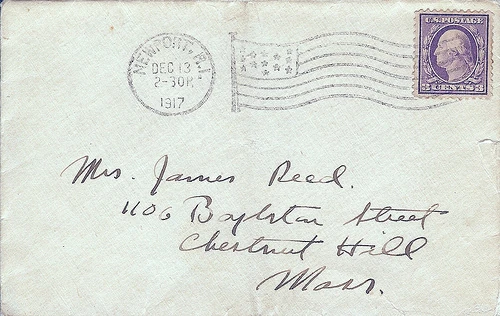 U.S. POSTAGE
NEWPORT, R.I.
DEC 13
2-30P.
1917
3 CENTS 3
Mrs. James Reed.
1106 Boylston Street
Chestnut Hill
Mass.